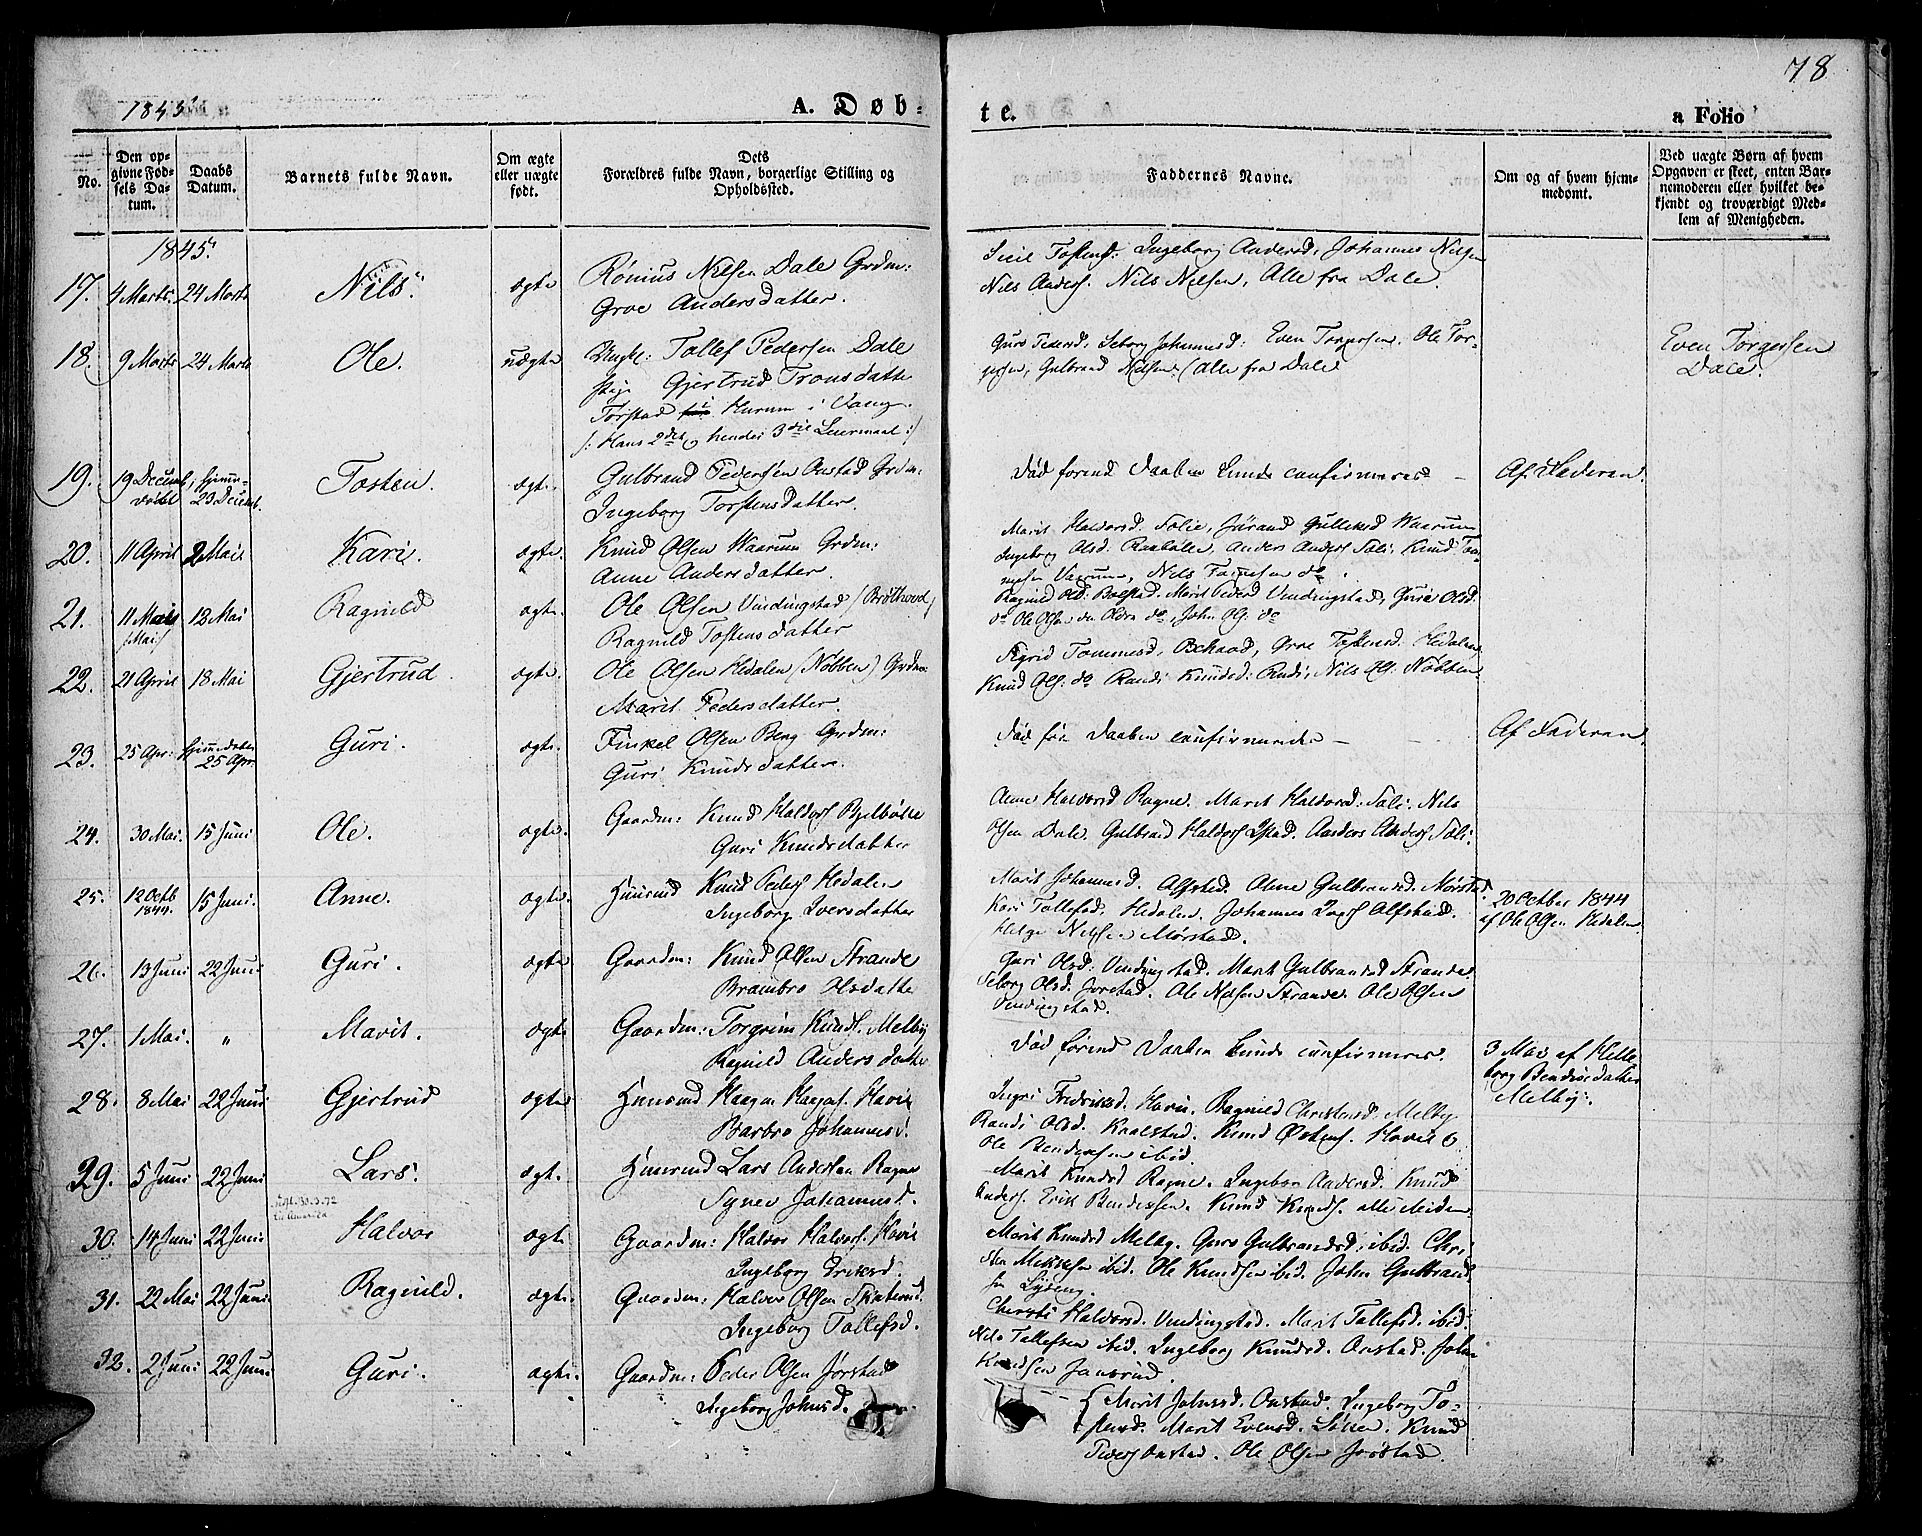 78
1845.
A. Døb-
te.
a Folio
No.
Den op-
givne Fød-
sels Da-
tum.
Daabs
Datum.
Barnets fulde Navn.
Om ægte
eller uægte
født.
Dets
Forældres fulde Navn, borgerlige Stilling og
Opholdssted.
Faddernes Navne.
Om og af hvem hjem-
medømt.
Ved uægte Børn af hvem
Opgaven er skeet, enten Bar-
nemoderen eller hvilket be-
kjendt og troværdigt Med-
lem af Menigheden.
1845.
17. 4 Marts. 24 Marts Nils. ægte Rønius Nilsen Dale Grdm:
Groe Andersdatter.
Siril Tostensd: Ingeborg Andersd, Johannes Nilsen
Nils Anders. Nils Nilsen, Alle fra Dale.
18. 9 Marts 24 Marts Ole. uægte Ungkl: Tollef Pedersen Dale
Pige Gjertrud Tronsdatter
Torstad Hurum i Vang.
/: Hans 2det og hendes 3die Leiermaal :/
Guro Pedersd, Seborg Johannesd: Even Torgersen. Ole Tor-
gersen, Gulbrand Nilsen (Alle fra Dale
Even Torgersen
Dale.
19. 19 Decemb, Hjemme-
døbt 23 Decemb. Tosten. ægt. Gulbrand Pedersen Onstad Grdm:
Ingeborg Torstensdatter.
Død førend Daaben kunde confirmeres - Af Faderen.
20. 11 April 2 Mai Kari. ægte. Knud Olsen Waarum Grdm:
Anne Andersdatter.
Marit Haldorsd. Folie, Jørand Gulleksd Waarum
Ingeborg Olsd. Raabøle, Anders Anders Fali. Knud
Waarum, Nils do.
21. 11 Mai
/Mai/ 12 Mai Ragnild ægte. Ole Olsen Vindingstad / Brøthood /
Ragnild Tostensdatter
Ragnild Olsd: Bolstad. Marit Pedersd Vindingstad, Guri Olsd.
do Ole Olsen den Eldre do, John Ols: do
22. 21 April 18 Mai Gjertrud. ægt. Ole Olsen Hedalen (Nøbben) Grdm:
Marit Pedersdatter.
Sigrid Tommesd, Groe Tostensd. Hedalen
Knud Ols. do Randi Knudsd: Nils Ols: Nøbben
23. 25 Apr: Hjemmedøbt
25 Apr. Guri. ægt. Finkel Olsen Berg Grdm:
Guri Knudsdatter.
Død før Daaben confirmeredes - Af Faderen.
24. 30 Mai. 15 Juni Ole. ægte. Gaardm: Knud Haldors Bjelbølle
Guri Knudsdatter
Anne Haldorsd Ragne. Marit Haldorsd. Fali. Nils
Olsen Dale. Gulbrand Haldors Ystad. Anders Anders Fali.
25. 12 Octb
1844. 15 Juni. Anne. ægte. Huusmd Knud Peders Hedalen
Ingeborg Iversdatter
Marit Johannesd. Alfstad. Anne Gulbrandsd. Mørstad.
Kari Tollefsd. Hedalen. Johannes Alfstad.
Helge Nilsen Mørstad.
20 October 1844
af Ole Olsen Hedalen.
26. 13 Juni 22 Juni Guri. ægte Gaardm: Knud Olsen Strande
Brambro Olsdatter
Guri Olsd. Vindingstad. Marit Gulbrandsd Strande.
Seborg Olsd. Jørstad. Ole Nilsen Strande. Ole Olsen
Vindingstad.
27. 1 Mai. " Marit. ægte Gaardm: Torgrim Knuds. Melby
Ragnild Andersdatter
Død førend Daaben kunde confirmeres. 3 Mai af Helle
borg Bendixdatter
Melby.
28. 8 Mai 22 Juni Gjertrud ægte Huusmd Haagen Haagens. Havig
Barbro Johannesd.
Ingri Fredriksd. Havig. Ragnild Christensd. Melby
Randi Olsd. Kaalstad. Knud Østens. Havig
Ole Bendixsen ibid
29. 5 Juni 22 Juni Lars. ægt. Huusmd Lars Andersen Ragne
Synev Johannesd.
Marit Knudsd Ragne. Ingebor Andersd. Knud
Anders. Erik Bendixsen. Knud Knuds. alle ibiden
30. 14 Juni 22 Juni. Halvor ægt. Gaardm: Halvor Halvors. Havig
Ingeborg Eriksd.
Marit Knudsd Melby. Guro Gulbrandsd. ibid. Chri
sten Mikkelsen ibid. Ole Knudsen ibid. John Gulbrand
sen
31. 22 Mai 22 Juni. Ragnild. ægte. Gaardm: Halvor Olsen Skattrud
Ingeborg Tollefsd.
Chersti Haldorsd. Vindingstad. Marit Tollefsd. ibid.
Nils Tollefsen ibid. Ingeborg Knudsd. Onstad. John
Knudsen
32. 2 Juni 22 Juni. Guri. ægte. Gaardm: Peder Olsen Jørstad
Ingeborg Johnsd.
Marit Johnsd. Onstad. Ingeborg To-
stensd. Marit Evensd. Løken. Knud
Peders Onstad. Ole Olsen Jørstad.